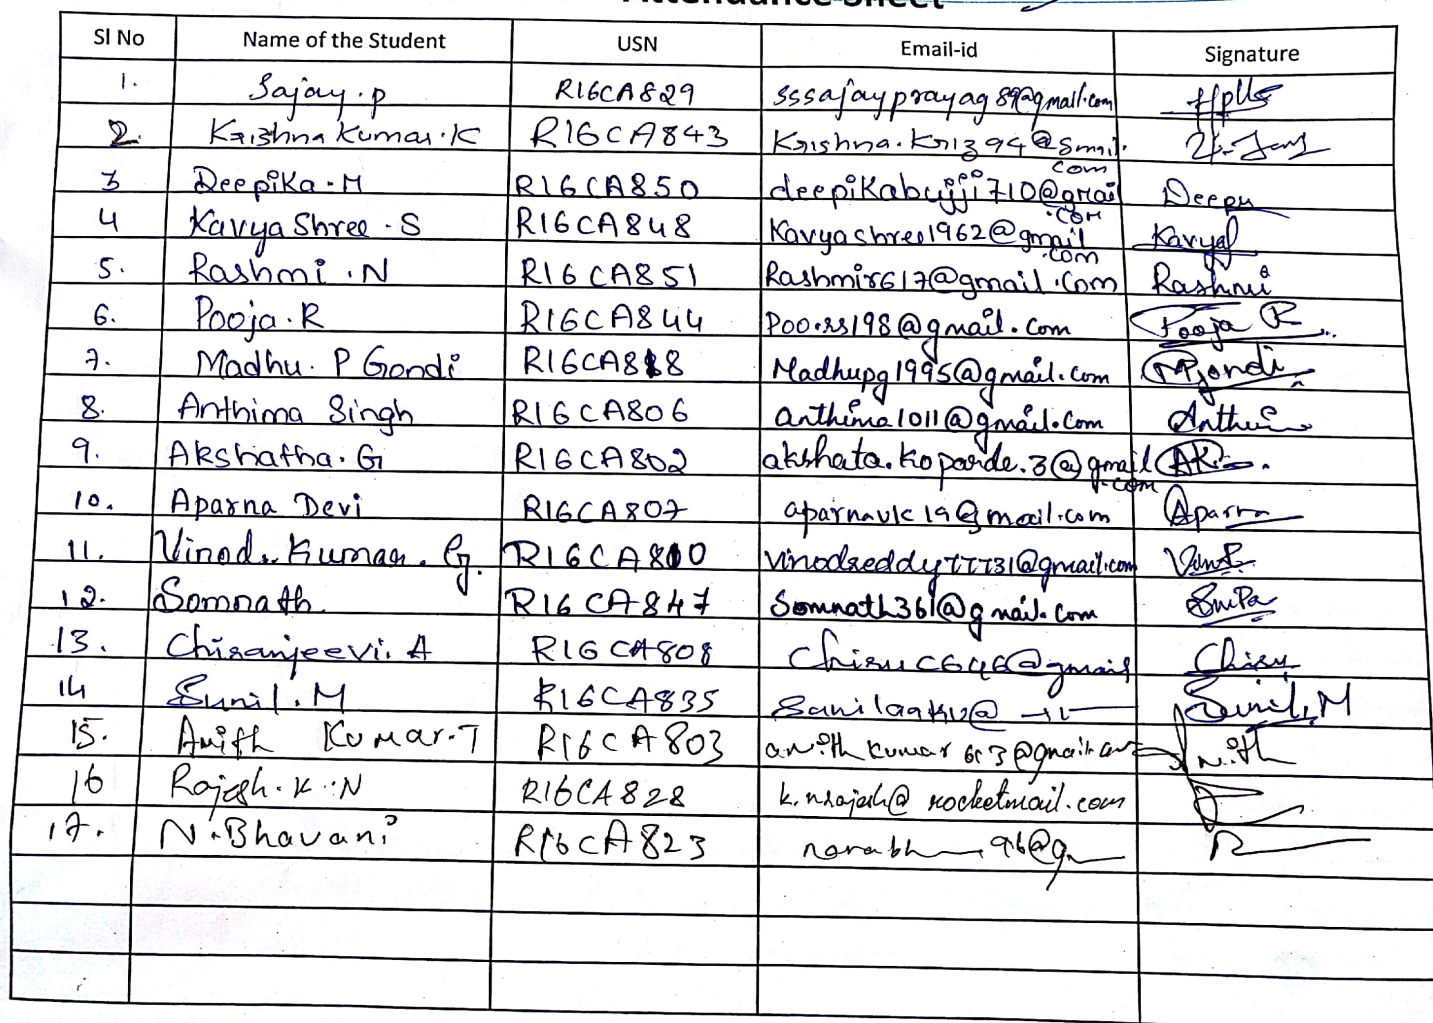 Attendance Sheet
Sl No Name of the Student USN Email-id Signature
1. Sajay.p R16CA829 sssajayprayag89@gmail.com
2. Krishna Kumar.K R16CA843 Krishna.Kriz94@gmail.com
3 Deepika.M R16CA850 deepikabujji710@gmail.com Deepu
4 Kavya Shree.S R16CA848 Kavyashree1962@gmail.com Kavya
5. Rashmi.N R16CA851 Rashmir617@gmail.com Rashmi
6. Pooja.R R16CA844 Poo.rs198@gmail.com Pooja R
7. Madhu. P Gondi R16CA818 Madhupg1995@gmail.com MPgondi
8. Anthima Singh R16CA806 anthima1011@gmail.com
9. Akshatha.G R16CA802 akshata.koparde.3@gmail.com
10. Aparna Devi R16CA807 aparnavk19@gmail.com Aparna
11. Vinod. Kumar. G. R16CA810 vinodreddy77731@gmail.com
12. Somnath R16CA847 Somnath361@gmail.com
13. Chiranjeevi. A R16CA808 Chiruc646@gmail Chiru
14 Sunil.M R16CA835 Sunil.M
15. Anith Kumar.T R16CA803 Anith
16 Rajesh.K.N R16CA828 k.nrajesh@rocketmail.com
17. N.Bhavani R16CA823